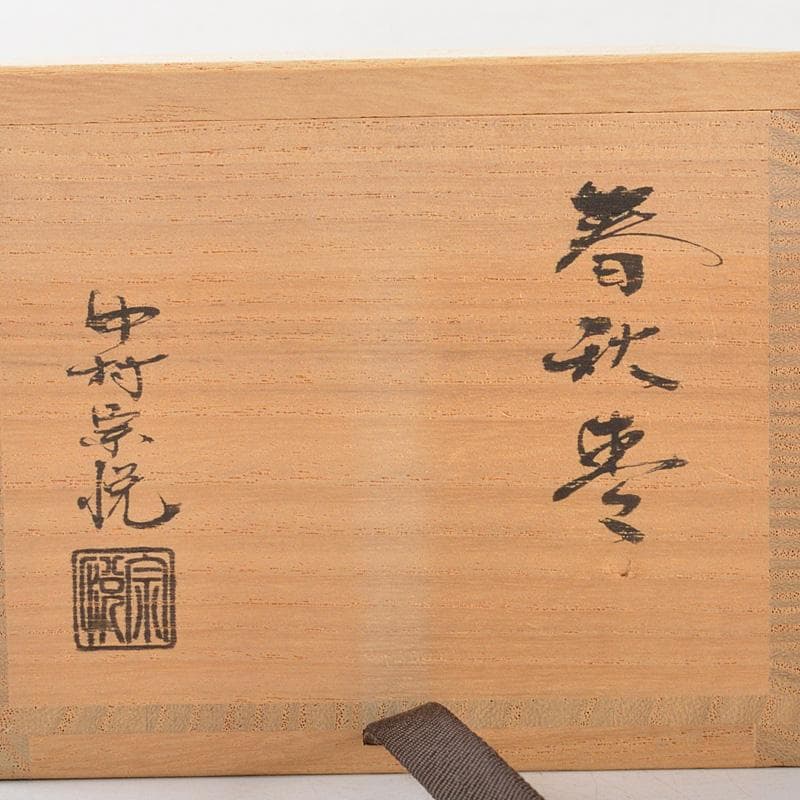 春秋棗
中村宗悦
宗悦